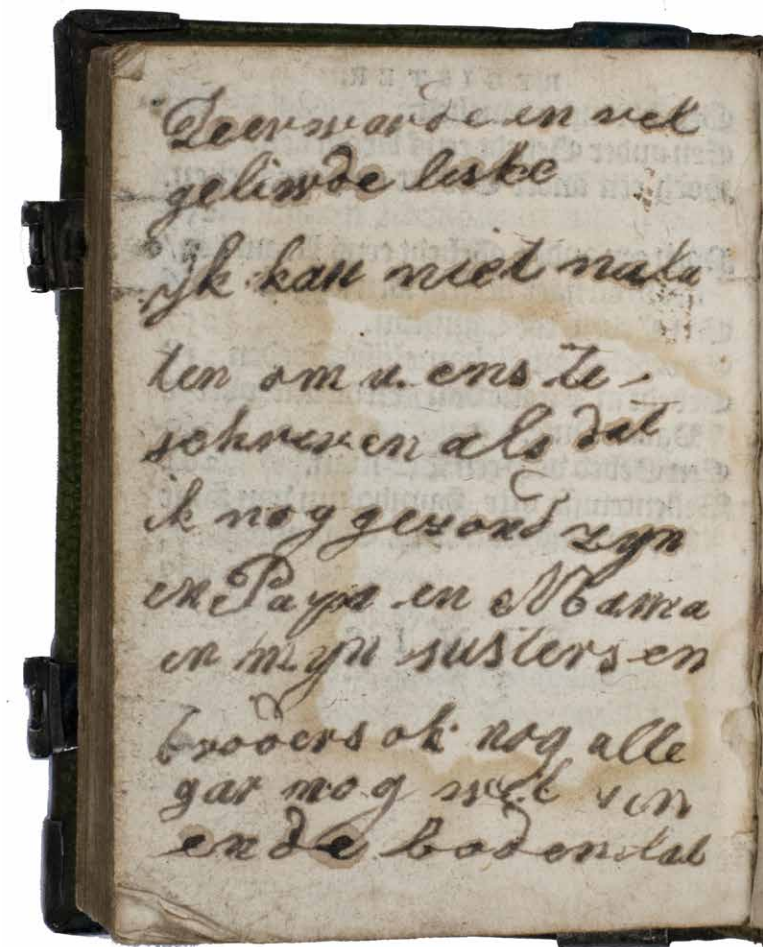 Zeerwarde en vel
geliwde liske
ik kan niet nala
ten om u. ens te
schreven als dat
ik nog gezond zyn
en Papa en Mama
en myn susters en
broders ok nog alle
gar nog wel
ende boden dat